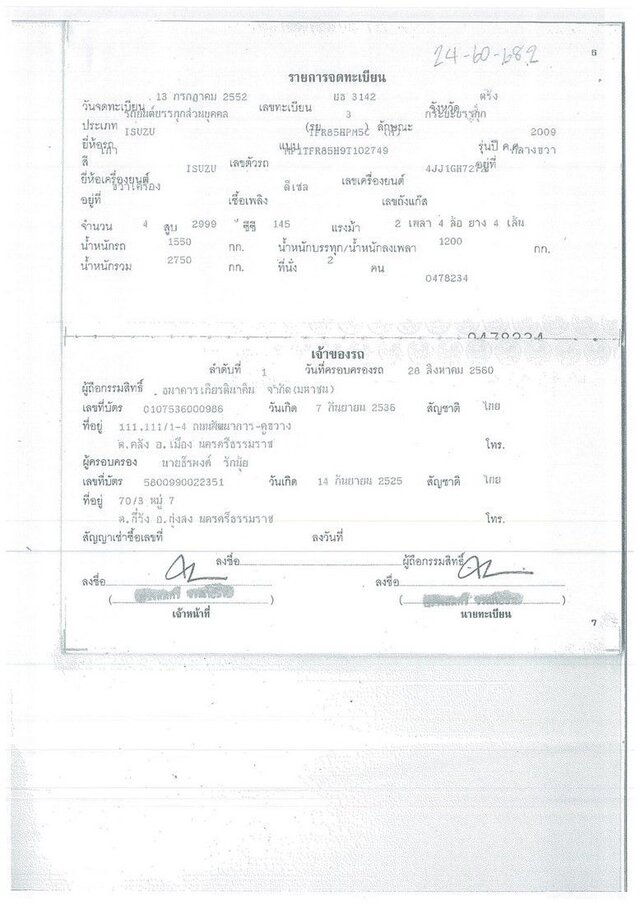 24-60-682
6
รายการจดทะเบียน
วันจดทะเบียน 13 กรกฎาคม 2552 เลขทะเบียน 3142 จังหวัด ตรัง
ประเภท รถยนต์บรรทุกส่วนบุคคล (รย. 3 ) ลักษณะ กระบะบรรทุก
ยี่ห้อรถ ISUZU แบบ รุ่นปี ค.ศ. 2009
สี เทา เลขตัวรถ MP1TFR85H9T102749 อยู่ที่ กลางขวา
ยี่ห้อเครื่องยนต์ ISUZU เลขเครื่องยนต์
อยู่ที่ ขวาเครื่อง เชื้อเพลิง ดีเซล เลขถังแก๊ส
จำนวน 4 สูบ 2999 ซีซี 145 แรงม้า 2 เพลา 4 ล้อ ยาง 4 เส้น
น้ำหนักรถ 1550 กก. น้ำหนักบรรทุก/น้ำหนักลงเพลา 1200 กก.
น้ำหนักรวม 2750 กก. ที่นั่ง 2 คน
0478234
0478234
เจ้าของรถ
ลำดับที่ 1 วันที่ครอบครองรถ 28 สิงหาคม 2560
ผู้ถือกรรมสิทธิ์ ธนาคารเกียรตินาคิน จำกัด(มหาชน)
เลขที่บัตร 0107536000986 วันเกิด 7 กันยายน 2536 สัญชาติ ไทย
ที่อยู่ 111,111/1-4 ถนนพัฒนาการ-คูขวาง
ต.คลัง อ.เมือง นครศรีธรรมราช โทร.
ผู้ครอบครอง นายธีรพงค์ รักนุ้ย
เลขที่บัตร 5800990022351 วันเกิด 14 กันยายน 2525 สัญชาติ ไทย
ที่อยู่ 70/3 หมู่ 7
ต.กี่วัง อ.ทุ่งสง นครศรีธรรมราช โทร.
สัญญาเช่าซื้อเลขที่ ลงวันที่
ลงชื่อ ผู้ถือกรรมสิทธิ์
ลงชื่อ ลงชื่อ
( ) ( )
เจ้าหน้าที่ นายทะเบียน
7